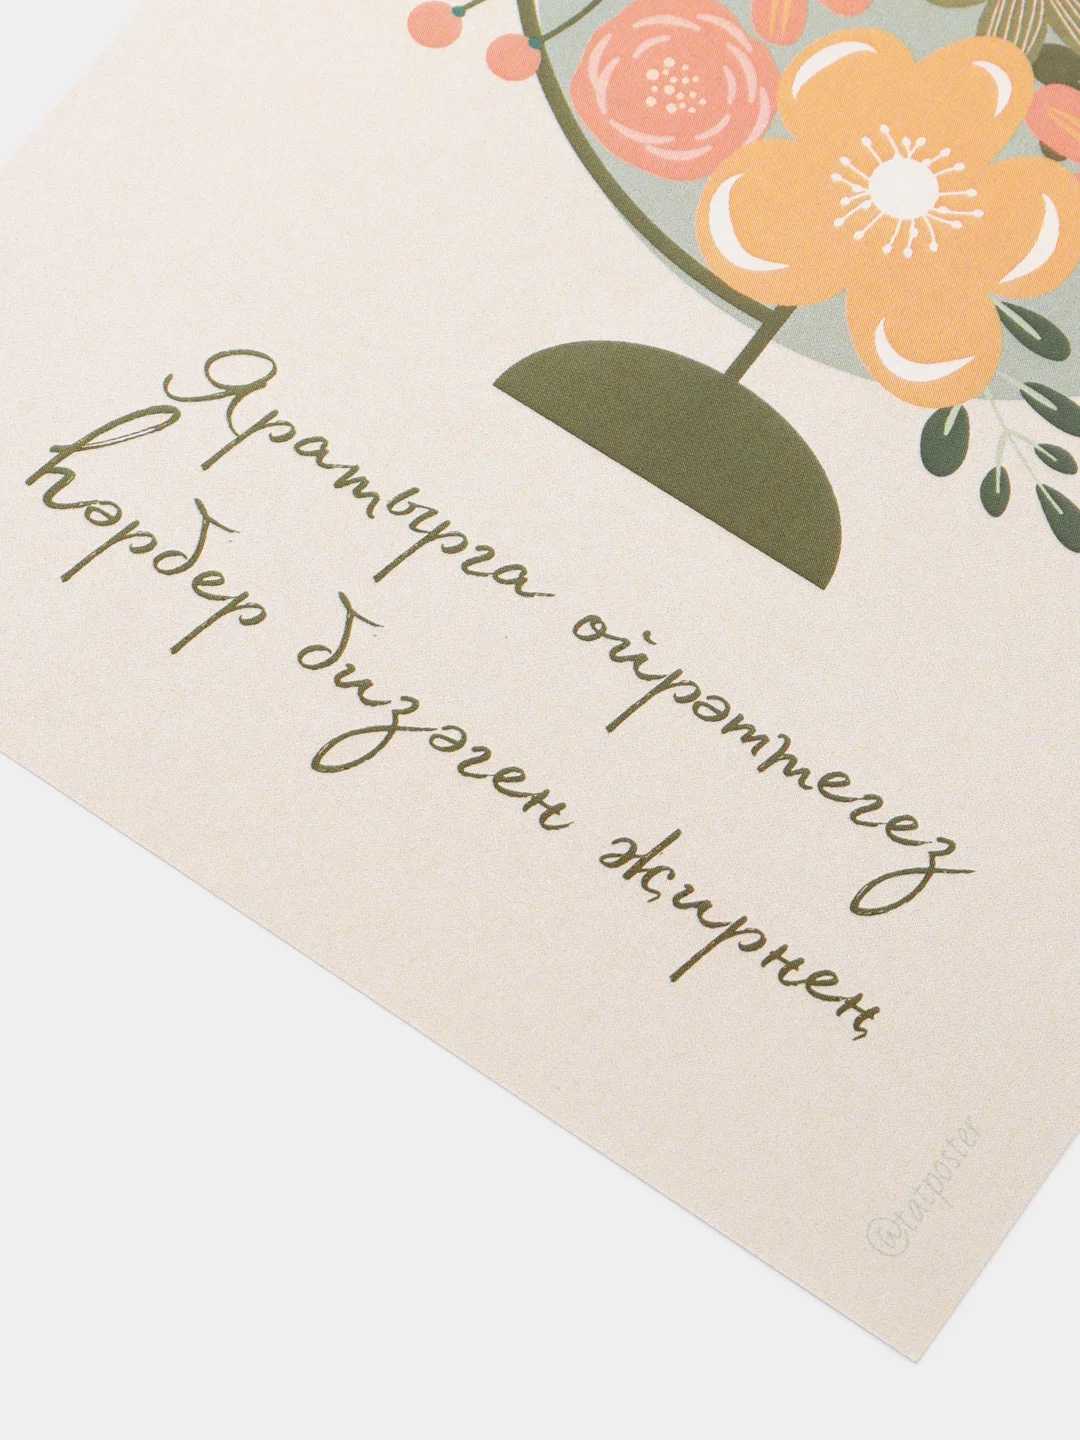 Яратырга өйрәттегез
һәрбер бизәген җирнең
@tatposter